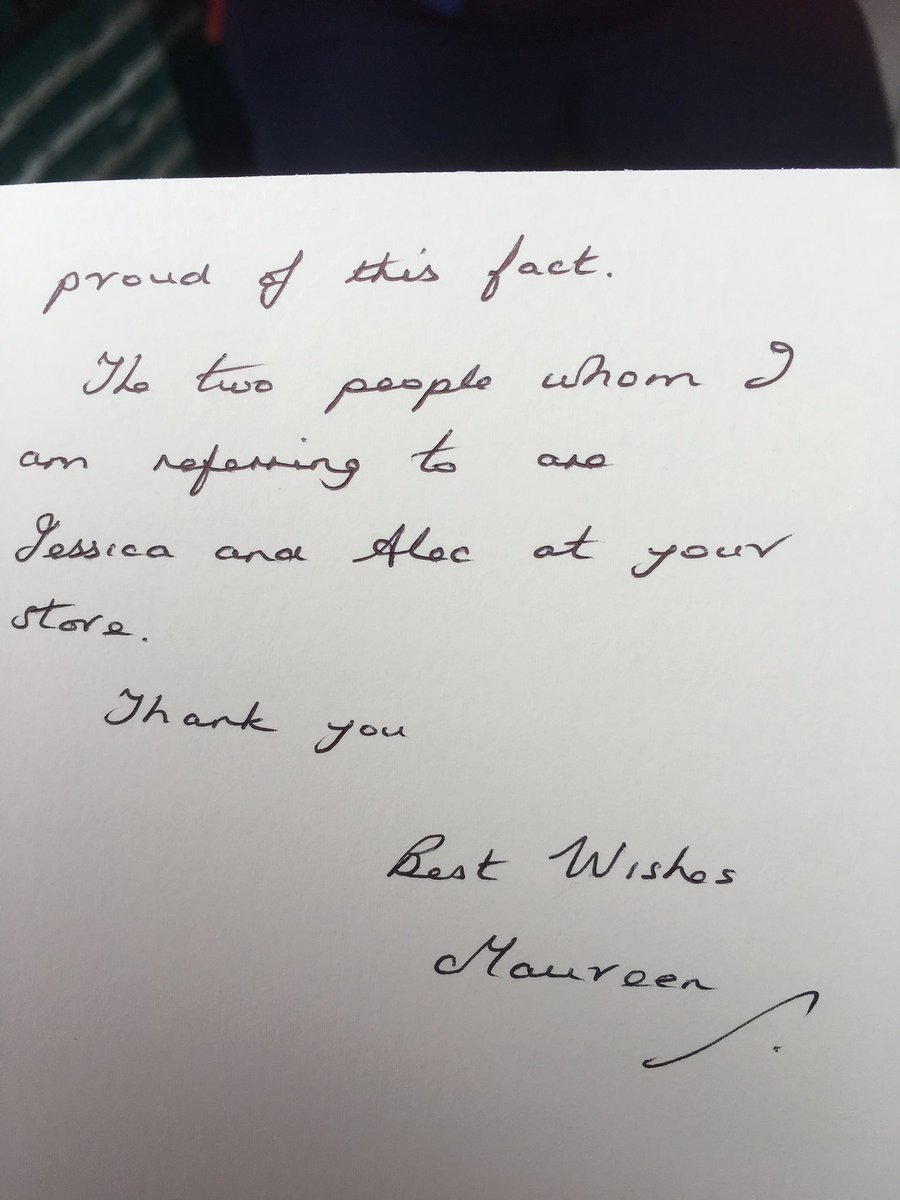 proud of this fact.
The two people whom I
am referring to are
Jessica and Alec at your
store.
Thank you
Best Wishes
Maureen